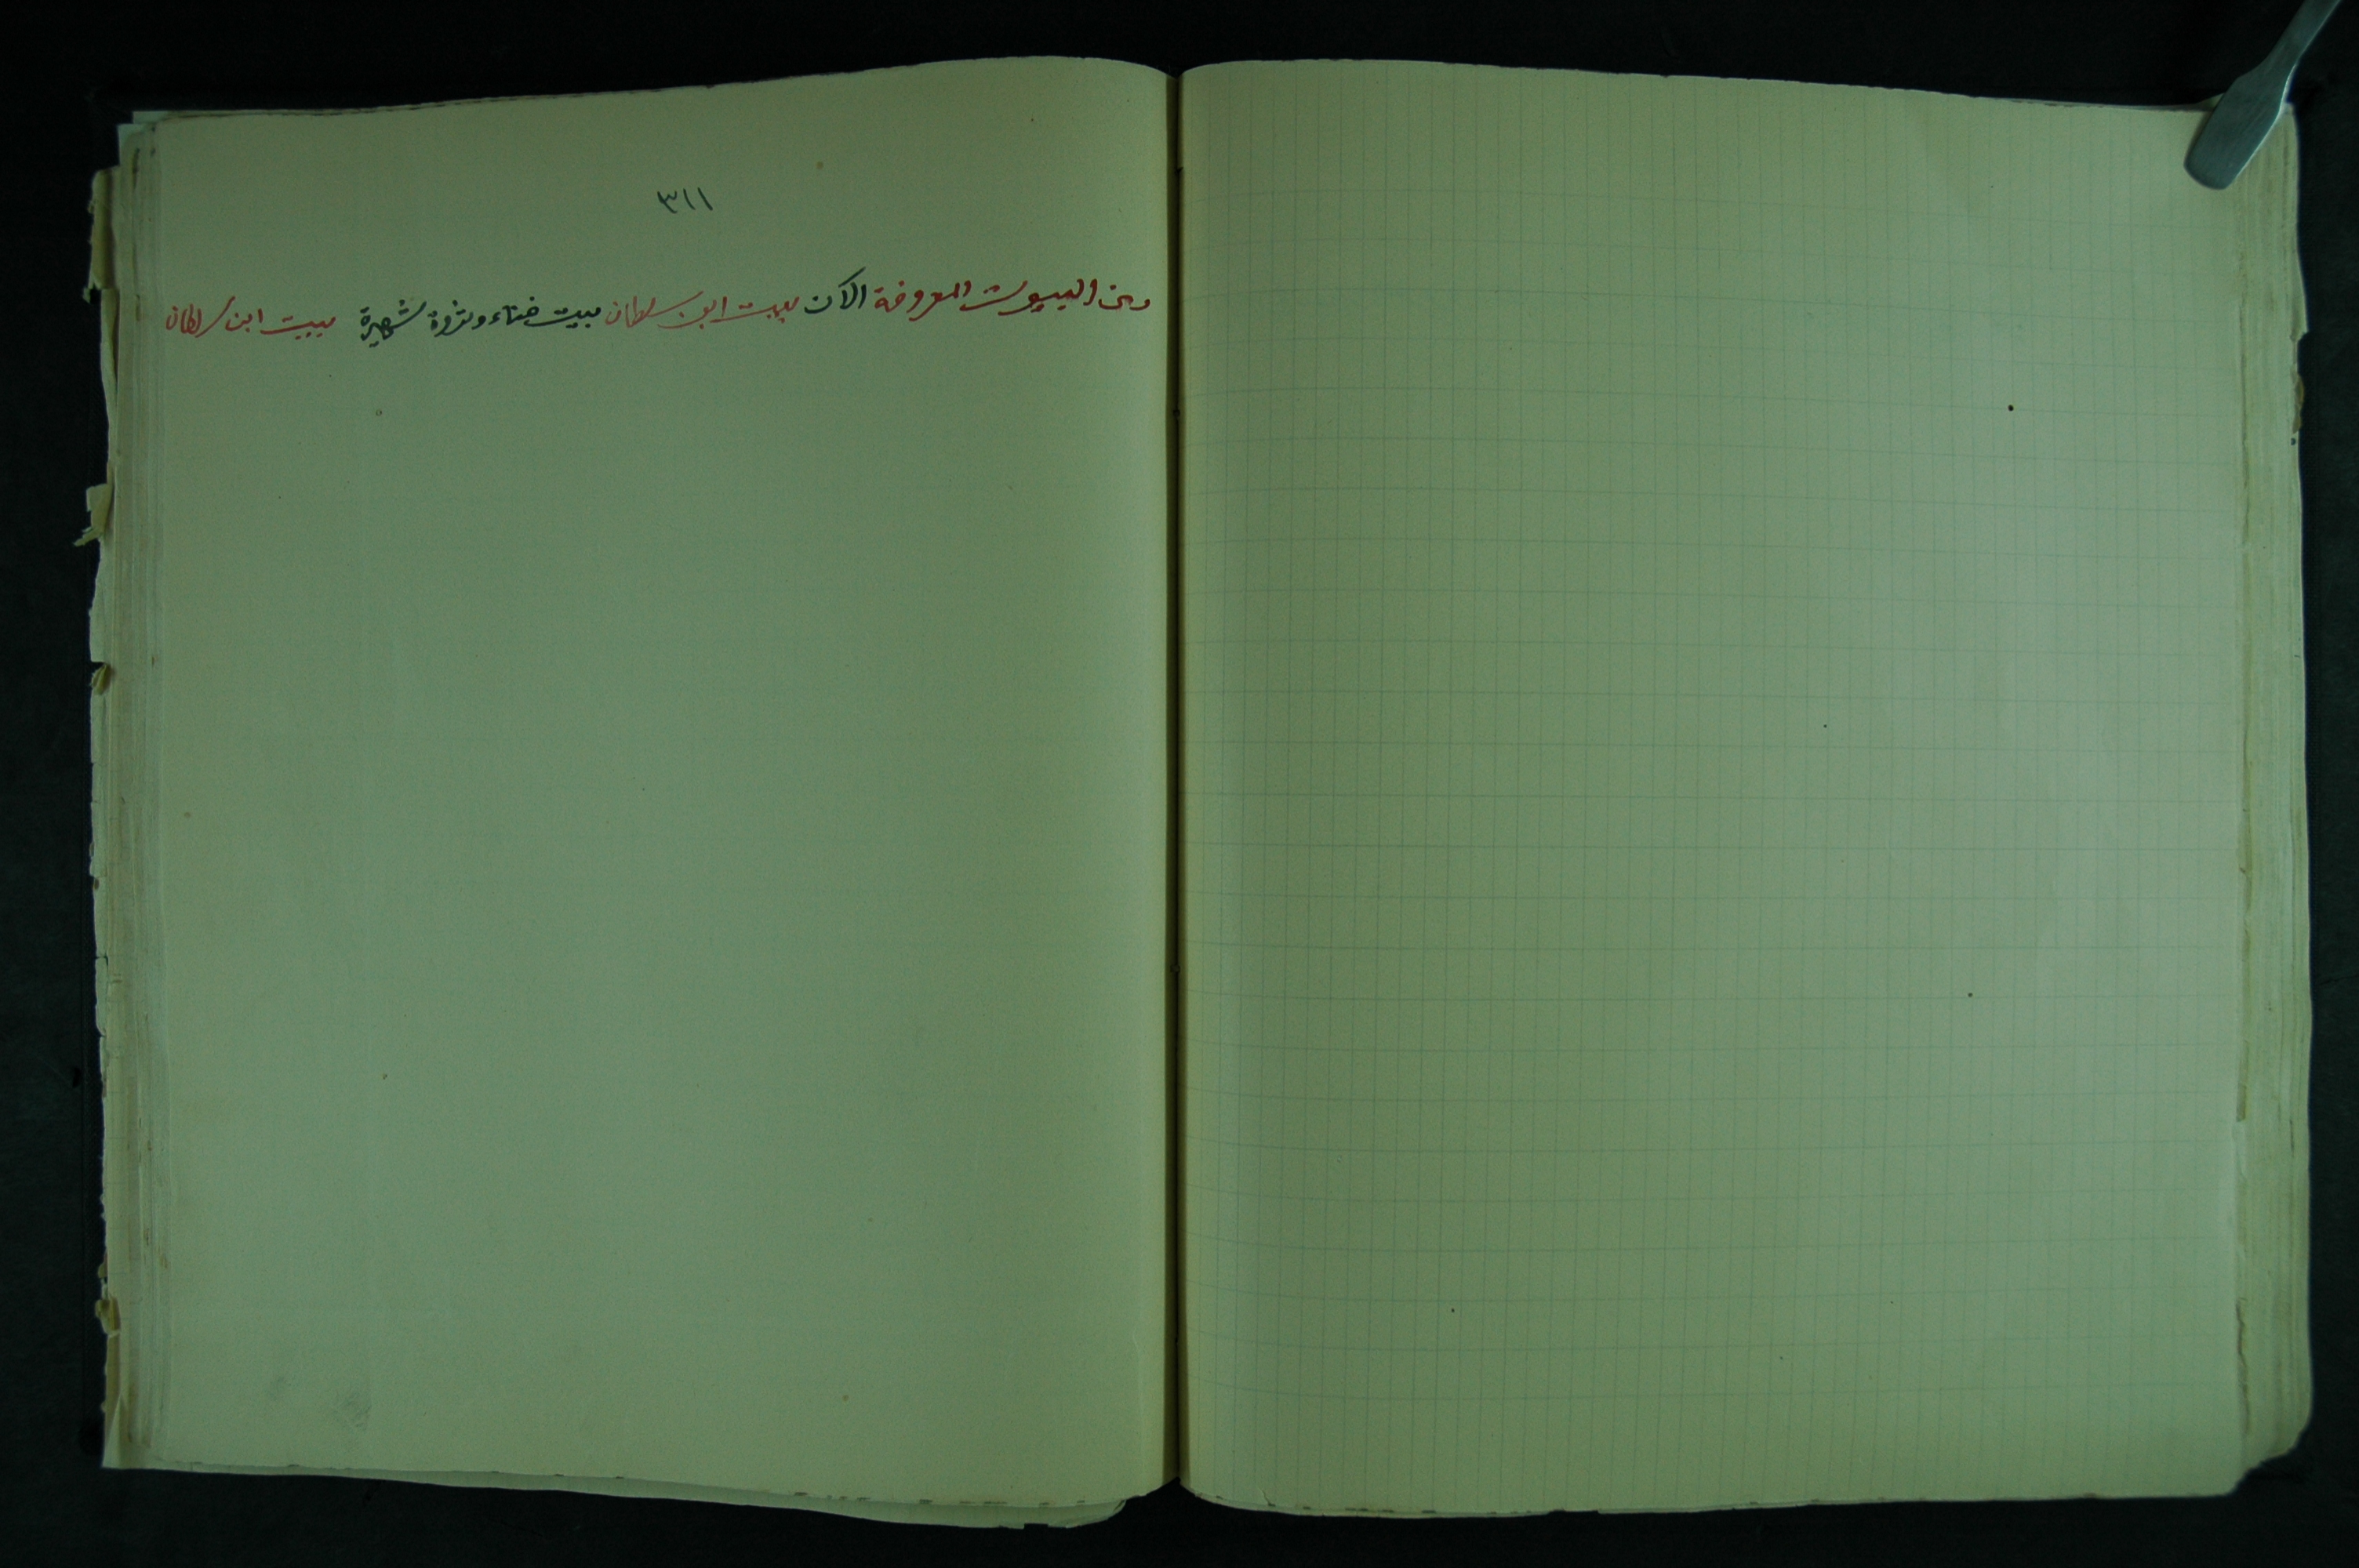 ٣١١
ومن البيوت المعروفة الآن بيت ابن سلطان بيت غناء وثروة شهيرة بيت ابن سلطان